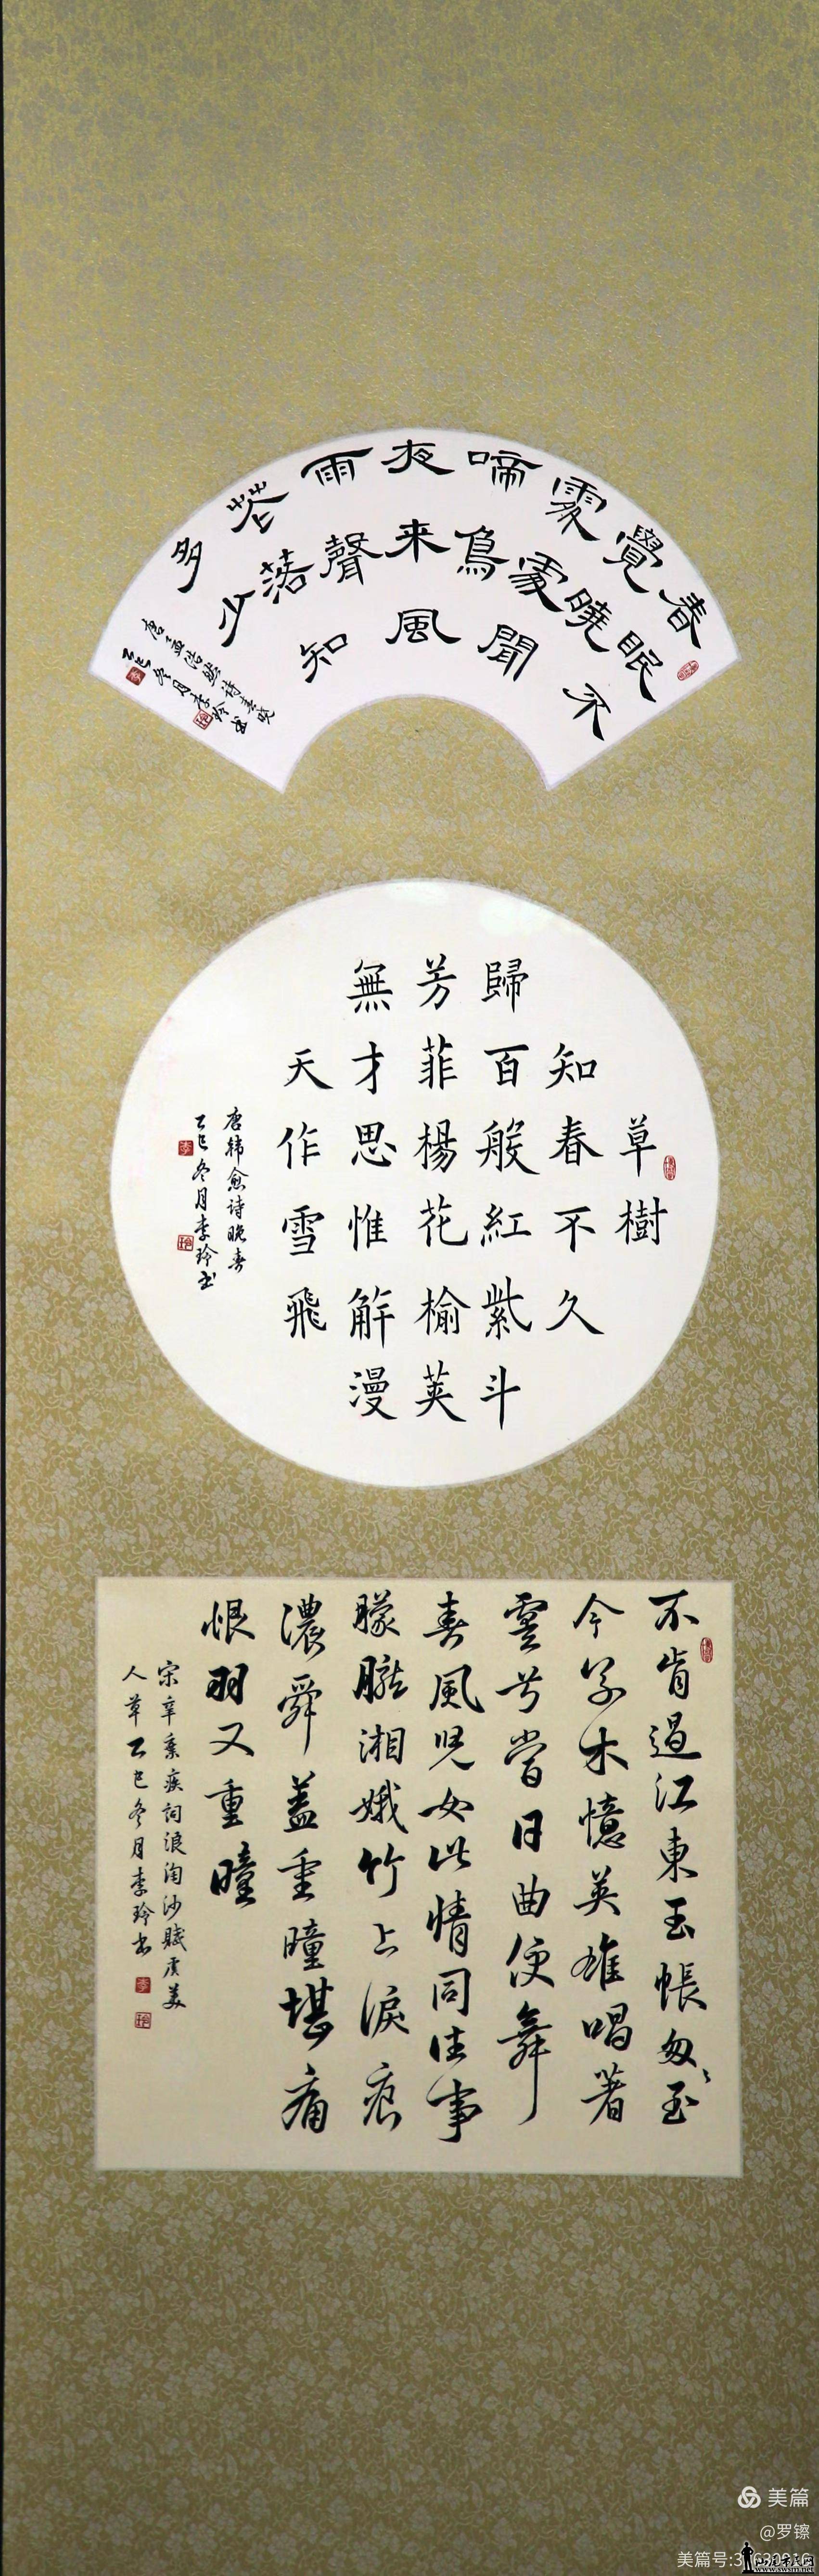 春眠不
覺曉
處處聞
啼鳥
夜来風
雨聲
花落知
多少
唐孟浩然诗春晓
乙巳冬月李玲书
草樹
知春不久
歸百般紅紫斗
芳菲楊花榆荚
無才思惟解漫
天作雪飛
唐韩愈诗晚春
乙巳冬月李玲书
不肯過江東玉帳匆匆至
今草木憶英雄唱著
虞兮當日曲便舞
春風兒女此情同往事
朦朧湘娥竹上淚痕
濃舜蓋重瞳堪痛
恨羽又重瞳
宋辛棄疾詞浪淘沙賦虞美
人草乙巳冬月李玲书
美篇
@罗镲
美篇号: